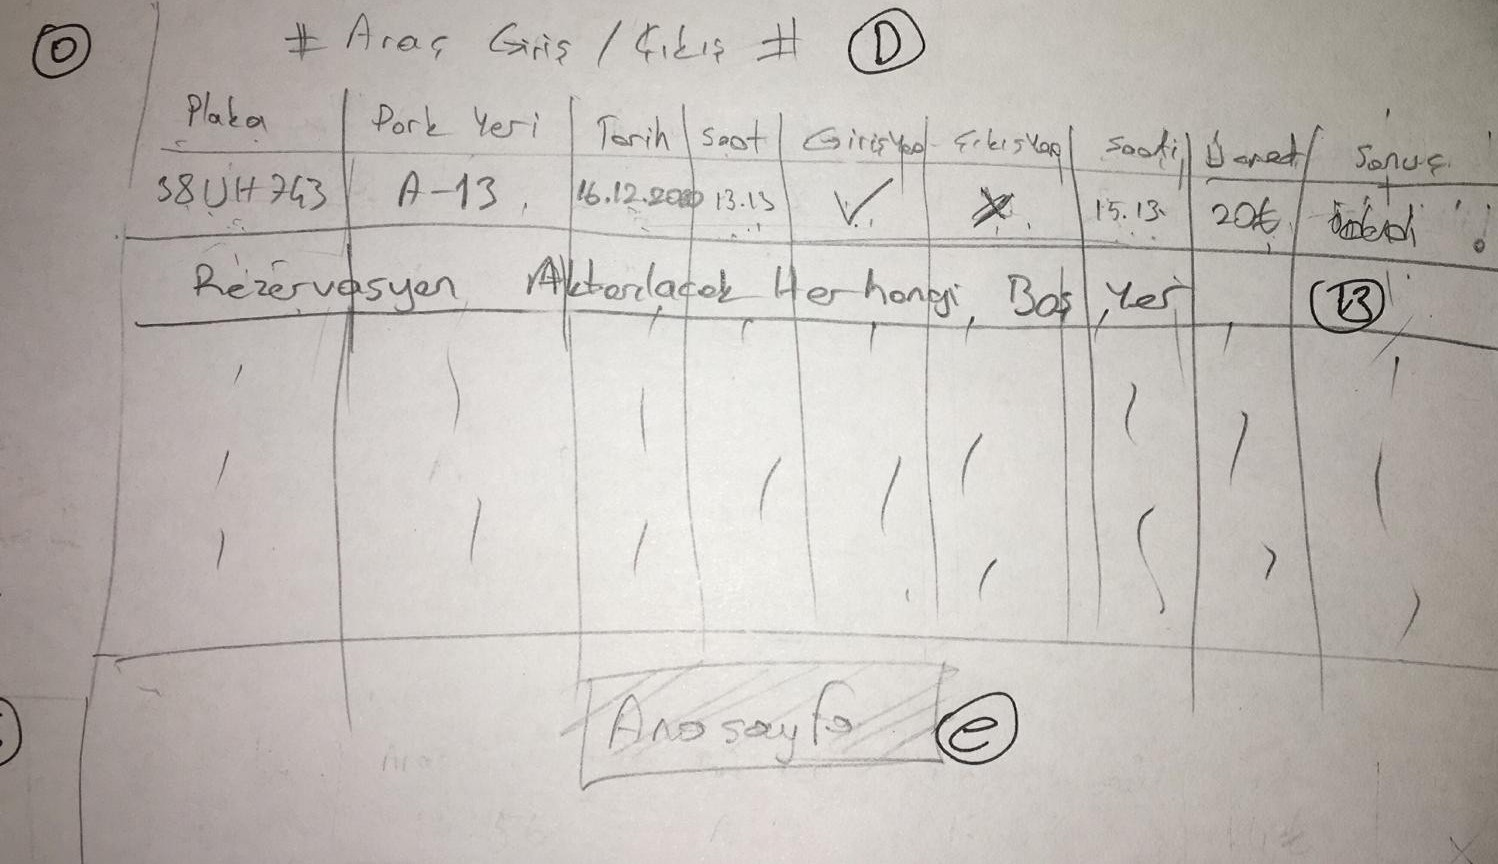 O # Araç Giriş / Çıkış # D
Plaka Park Yeri Tarih Saat Giriş Yap Çıkış Yap Saati Ücret Sonuç
38UH743 A-13 16.12.2020 13.13 15.13 20₺
Rezervasyon Aktarılacak Herhangi Boş Yer 13
Anasayfa e